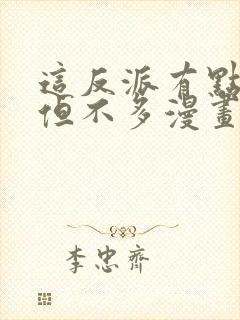 這反派有點
但不多漫畫
李忠齊